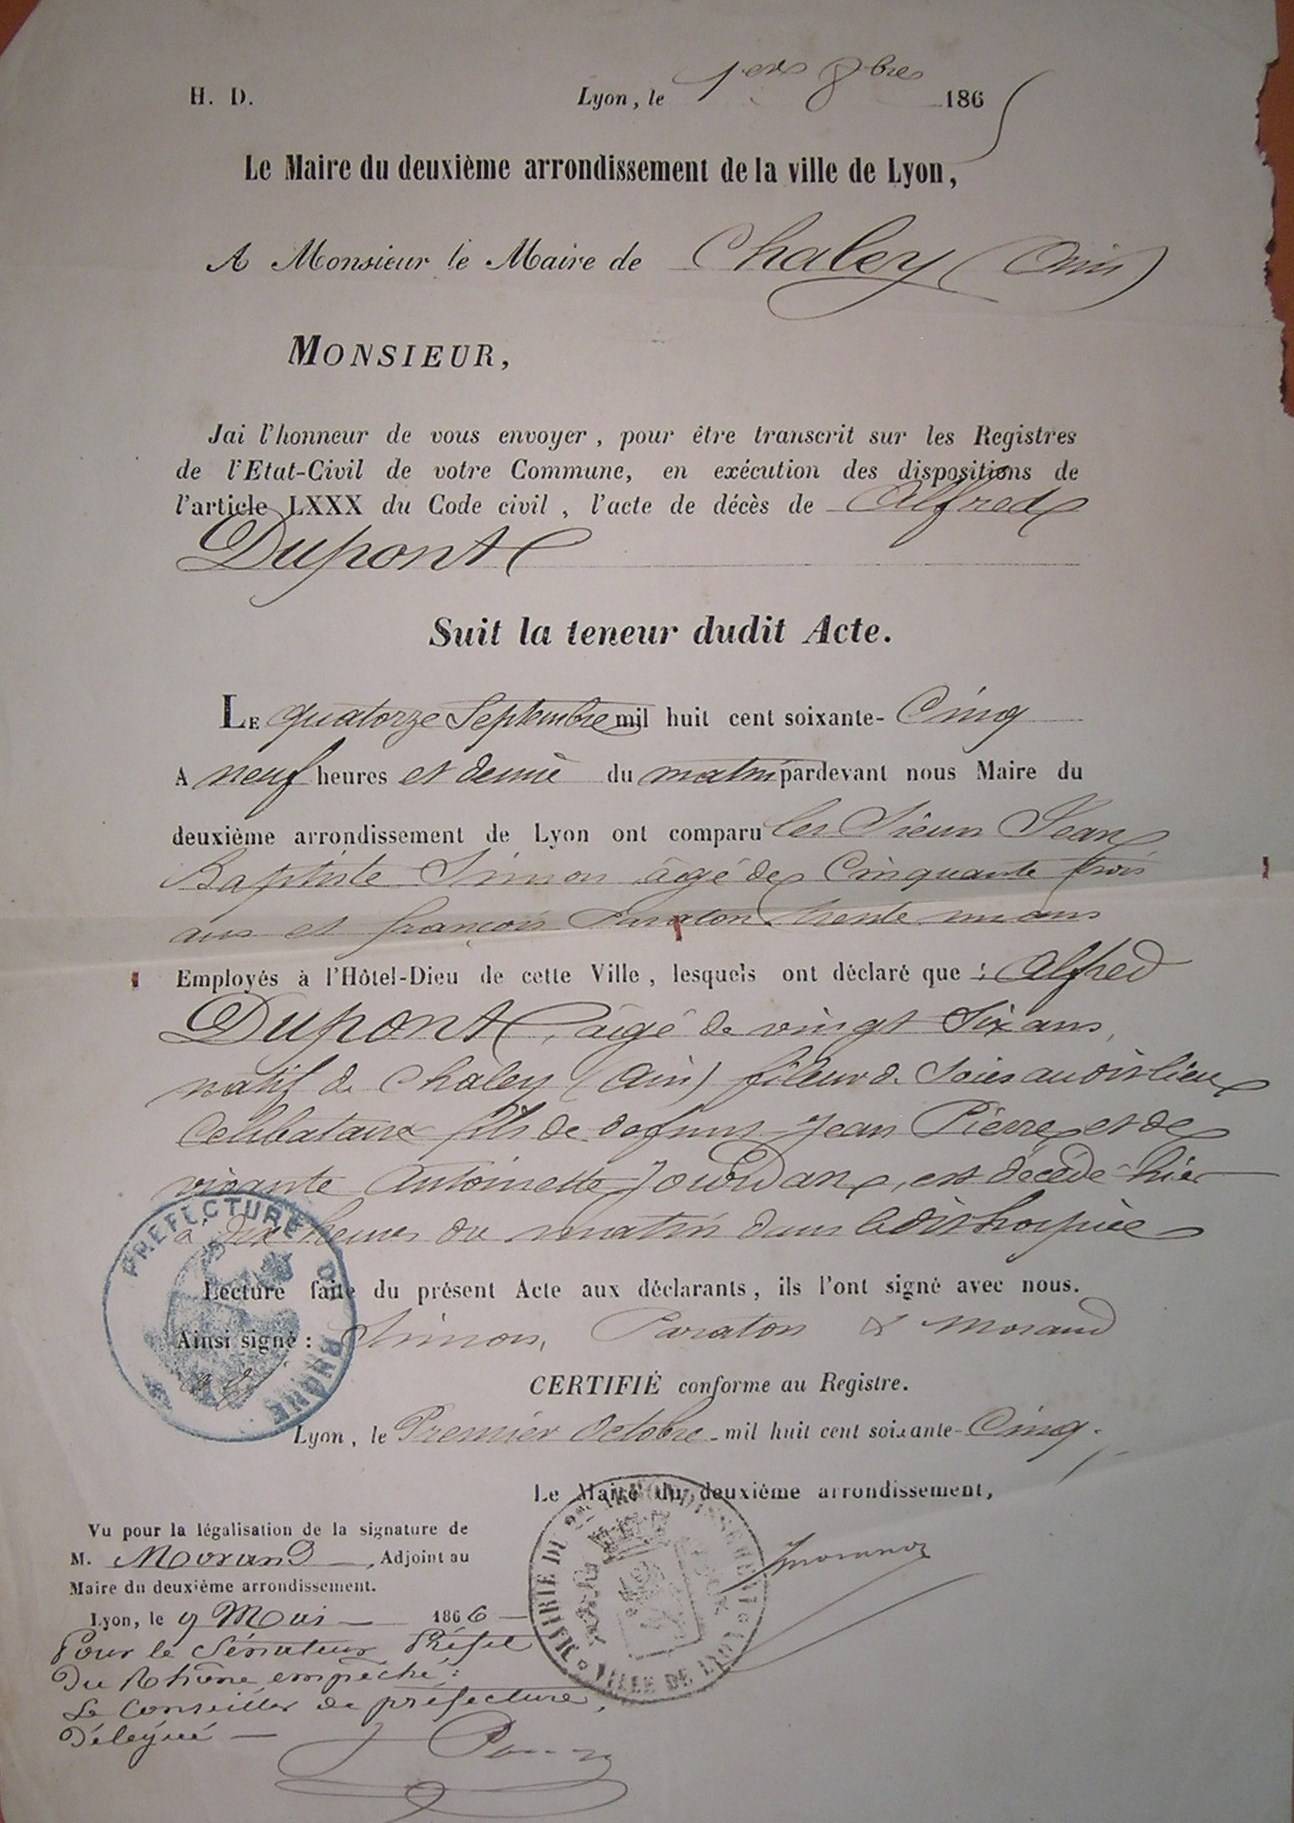 H. D. Lyon, le 1ers 8bres 1865
Le Maire du deuxième arrondissement de la ville de Lyon,
A Monsieur le Maire de Chaley (Ain)
MONSIEUR,
Jai l'honneur de vous envoyer, pour être transcrit sur les Registres
de l'Etat-Civil de votre Commune, en exécution des dispositions de
l'article LXXX du Code civil, l'acte de décès de Alfred
Dupont
Suit la teneur dudit Acte.
LE quatorze Septembre mil huit cent soixante-Cinq
A neuf heures et demie du matin pardevant nous Maire du
deuxième arrondissement de Lyon ont comparu les Sieurs Jean
Baptiste Simon âgé de Cinquante trois
ans et françois Paraton trente un ans
Employés à l'Hôtel-Dieu de cette Ville, lesquels ont déclaré que : Alfred
Dupont, âgé de vingt Six ans,
natif de Chaley (Ain) fileur de Soies audit lieu
Celibataire fils de defunt Jean Pierre et de
vivante Antoinette Jourdan, est décédé hier
à dix heures du matin dans ledit hospice
Lecture faite du présent Acte aux déclarants, ils l'ont signé avec nous.
Ainsi signé : Simon, Paraton & Morand
CERTIFIÉ conforme au Registre.
Lyon, le Premier Octobre mil huit cent soixante-Cinq.
Le Maire du deuxième arrondissement,
Morand
Vu pour la légalisation de la signature de
M. Morand, Adjoint au
Maire du deuxième arrondissement.
Lyon, le 9 Mai 1866
Pour le Sénateur Préfet
du Rhône empêché :
Le Conseiller de préfecture,
délégué
PREFECTURE DU RHÔNE
MAIRIE DU 2me ARRONDISSEMENT
VILLE DE LYON